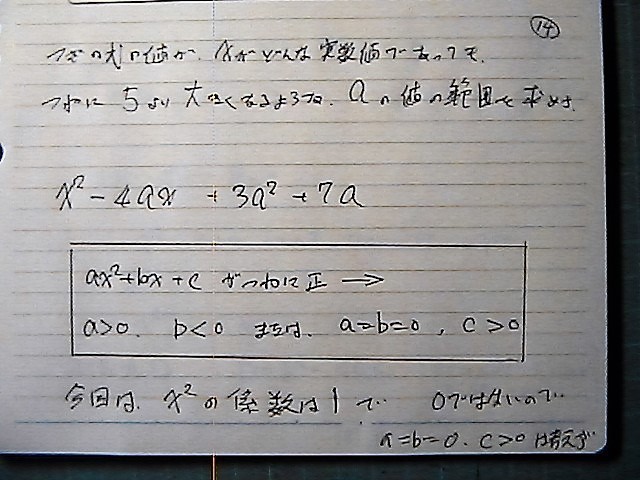 14
つぎの式の値が、xがどんな実数値であっても、
つねに 5より 大きくなるような、aの値の範囲を求めよ
x² - 4ax + 3a² + 7a
ax²+bx+c がつねに正 →
a>0. D<0 または. a=b=0, c>0
今回は、x²の係数は1で 0ではないので
a=b=0. c>0 は考えず